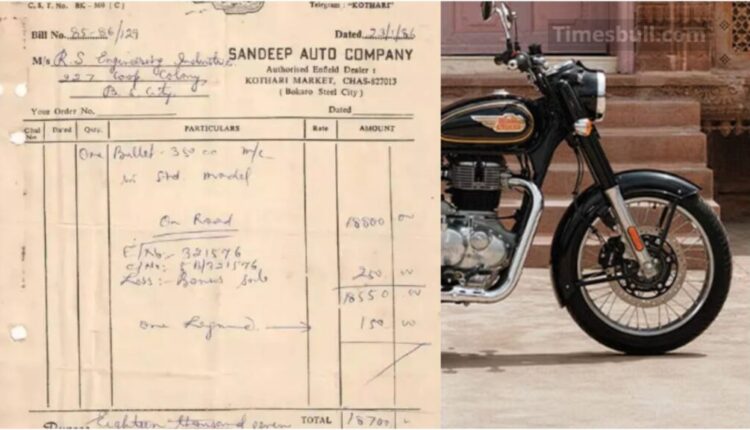 C. S. T. No. BK-500 (C)
Telegram : "KOTHARI"
Bill No. 85-86/129
Dated 23/1/86
M/s R.S. Engineering
SANDEEP AUTO COMPANY
927 Coop Colony,
B. S. City
Authorised Enfield Dealer :
KOTHARI MARKET, CHAS-827013
( Bokaro Steel City )
Your Order No.
Dated
Chal No
Dated
Qnty.
PARTICULARS
Rate
AMOUNT
One Bullet - 350 cc m/c
in Std. model
On Road 18800 00
E/No:- 321576
C/No: 5B/321576
Less:- Bonus 250 00
18550 00
One Legguard → 150 00
Eighteen thousand seven
TOTAL 18700
Timesbull.com